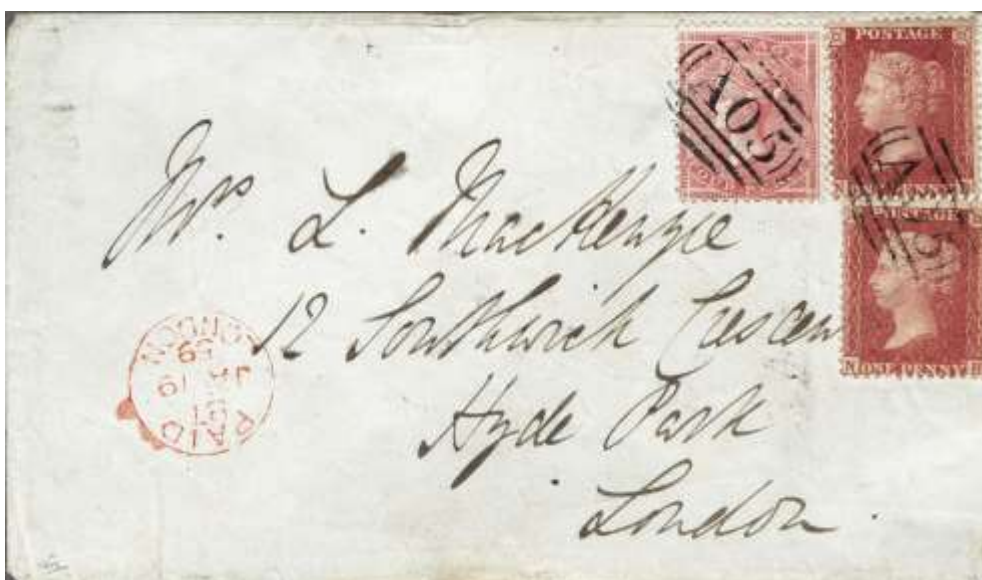 POSTAGE
A05
ONE PENNY
POSTAGE
ONE PENNY
Mrs. L. MacKenzie
12 Southwick Crescen
Hyde Park
London.
LONDON
59
PAID